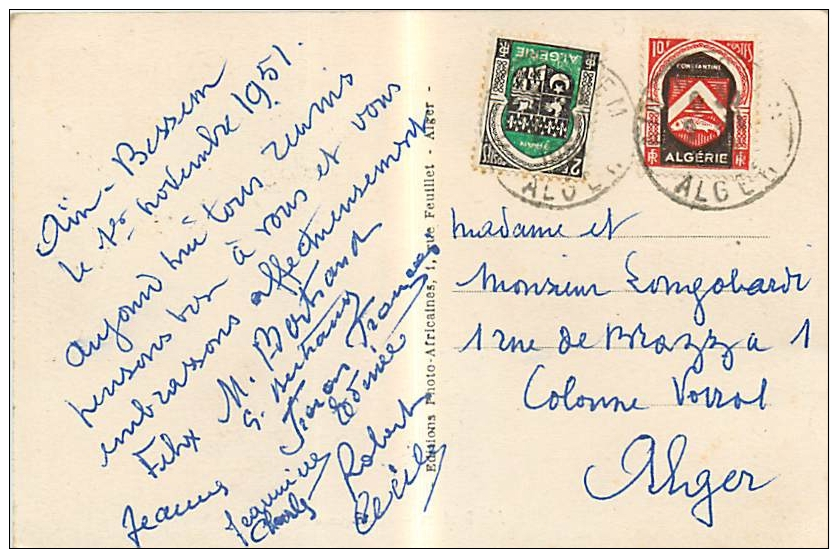 Aïn-Bessem
le 1er novembre 1951.
aujourd'hui tous réunis
pensons bien à vous et vous
embrassons affectueusement
Félix M. Bertrand
G. Bertrand
Jeanne Frances
Jeannine Edmée
Charly Robert
Cécile
Editions Photo-Africaines, 1, rue Feuillet - Alger -
ALGÉRIE
2F
10F POSTES
CONSTANTINE
ALGÉRIE
ALGER
ALGER
Madame et
Monsieur Longobardi
1 rue de Brazza 1
Colonne Voirol
Alger